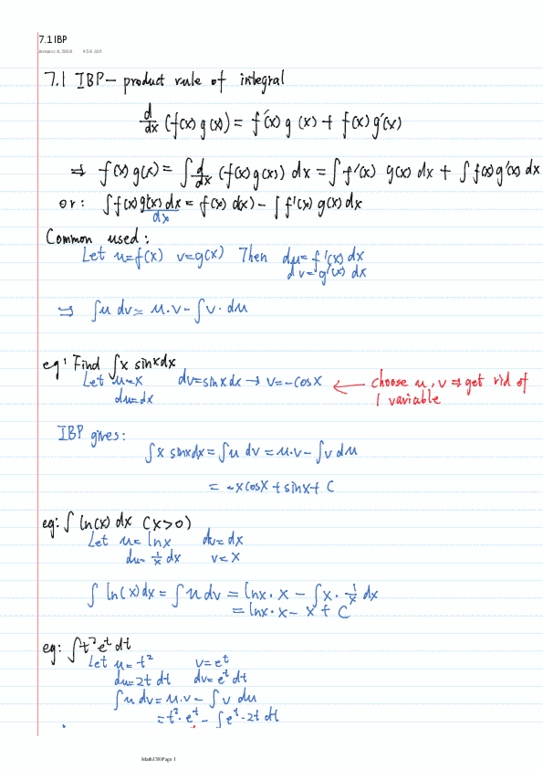 7.1 IBP
7.1 IBP – product rule of integral
d/dx (f(x)g(x)) = f'(x)g(x) + f(x)g'(x)
⇒ f(x)g(x) = ∫ d/dx (f(x)g(x)) dx = ∫ f'(x) g(x) dx + ∫ f(x)g'(x) dx
or: ∫ f(x)g(x) dx = f(x) - ∫ f'(x) g(x) dx
dx
Common used:
Let u=f(x) v=g(x) Then du = f'(x) dx
dv = g'(x) dx
⇒ ∫u dv = u·v - ∫v·du
eg: Find ∫x sinxdx
Let u=x dv=sinxdx → v=-cosx ← choose u, v ⇒ get rid of
du=dx 1 variable
IBP gives:
∫x sinxdx = ∫u dv = u·v - ∫v du
= -xcosx + sinx + C
eg: ∫ ln(x) dx (x>0)
Let u = lnx dv = dx
du = 1/x dx v = x
∫ ln(x)dx = ∫u dv = lnx · x - ∫x · 1/x dx
= lnx · x - x + C
eg: ∫t²e^t dt
Let u = t² v = e^t
du = 2t dt dv = e^t dt
∫u dv = u·v - ∫v du
= t² · e^t - ∫e^t · 2t dt